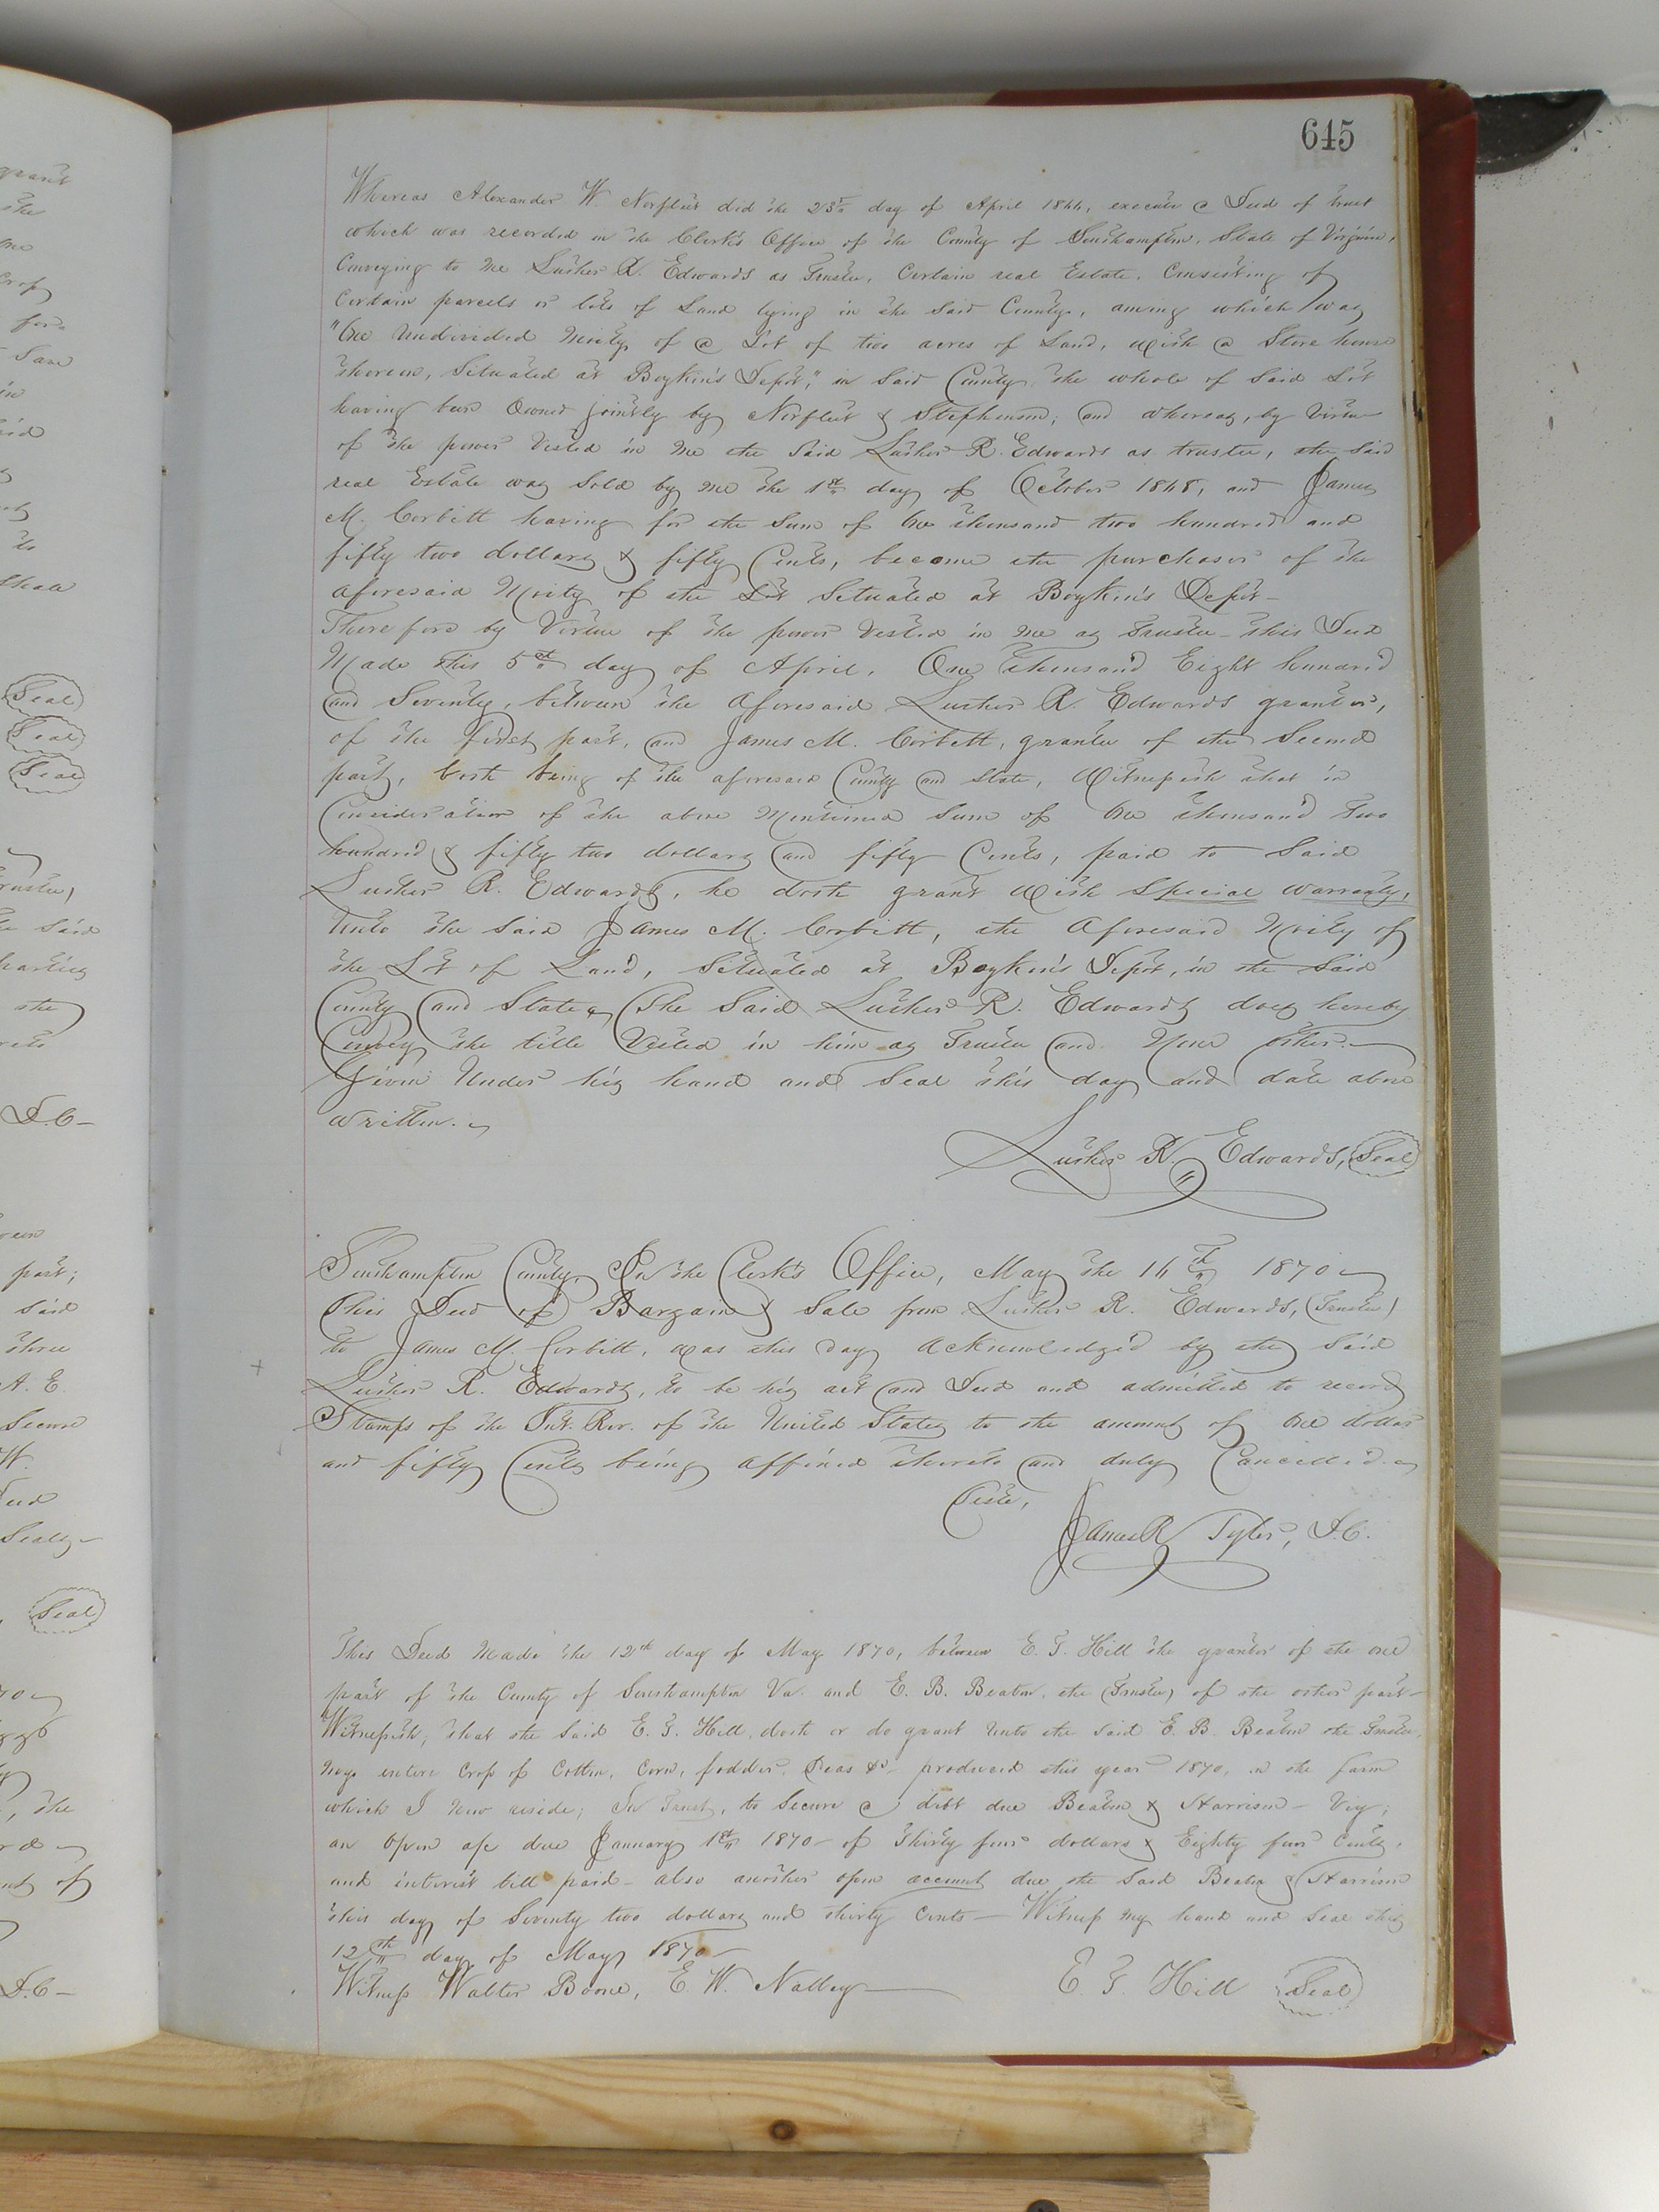 645
Whereas Alexander W. Norfleet did the 23rd day of April 1844, execute a Deed of trust
which was recorded in the Clerk's Office of the County of Southampton, State of Virginia,
Conveying to me Luther R. Edwards as Trustee, Certain real Estate, Consisting of
Certain parcels or lots of Land lying in the said County, among which was
"One Undivided Moity of a Lot of two acres of Land, with a Store house
thereon, Situated at Boykin's Depot," in Said County, the whole of Said Lot
having been Owned jointly by Norfleet & Stephenson; and whereas, by Virtue
of the power Vested in me the Said Luther R. Edwards as trustee, the Said
real Estate was Sold by me the 1st day of October 1848, and James
M. Corbitt having for the Sum of One thousand two hundred and
fifty two dollars & fifty Cents, become the purchaser of the
aforesaid Moity of the Lot Situated at Boykin's Depot-
Therefore by Virtue of the power Vested in me as Trustee - this Deed
Made this 5th day of April, One thousand Eight hundred
and Seventy, between the Aforesaid Luther R. Edwards grantor,
of the first part, and James M. Corbitt, grantee of the Second
part, both being of the aforesaid County and State, Witnesseth that in
Consideration of the above Mentioned Sum of One thousand Two
hundred & fifty two dollars and fifty Cents, paid to Said
Luther R. Edwards, he doth grant With Special Warranty,
Unto the Said James M. Corbitt, the Aforesaid Moity of
the Lot of Land, Situated at Boykin's Depot, in the Said
County and State, The Said Luther R. Edwards does hereby
Convey the title Vested in him as Trustee and None other.-
Given Under his hand and Seal this day and date above
written.
Luther R. Edwards, Seal
Southampton County, In the Clerk's Office, May the 16th 1870
This Deed of Bargain & Sale from Luther R. Edwards, (Trustee)
to James M. Corbitt, was this day acknowledged by the Said
Luther R. Edwards, to be his act and Deed and admitted to record
Stamps of the Int. Rev. of the United States to the amount of One dollar
and fifty Cents being affixed thereto and duly Cancelled.
Teste,
James R. Tyler, D.C.
This Deed Made the 12th day of May 1870, between E. T. Hill the grantor of the one
part of the County of Southampton Va. and E. B. Beaton, the (Trustee) of the other part-
Witnesseth, that the Said E. T. Hill, doth or do grant Unto the Said E. B. Beaton the Trustee,
my entire Crop of Cotton, Corn, fodder, Peas &c produced this year 1870, on the farm
which I now reside; In Trust, to Secure a debt due Beaton & Harrison - Viz;
an Open a/c due January 1st 1870 - of Thirty four dollars & Eighty four Cents,
and interest till paid - also another open account due the Said Beaton & Harrison
this day of Seventy two dollars and thirty Cents - Witness my hand and Seal this
12th day of May 1870-
Witness Walter Boone, E. W. Nalley E. T. Hill Seal